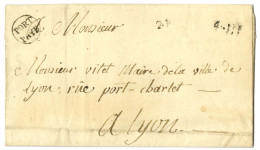 PORT PAYÉ
Monsieur
Monsieur vitet Maire de la ville de
Lyon, rue port-charlet -
a Lyon